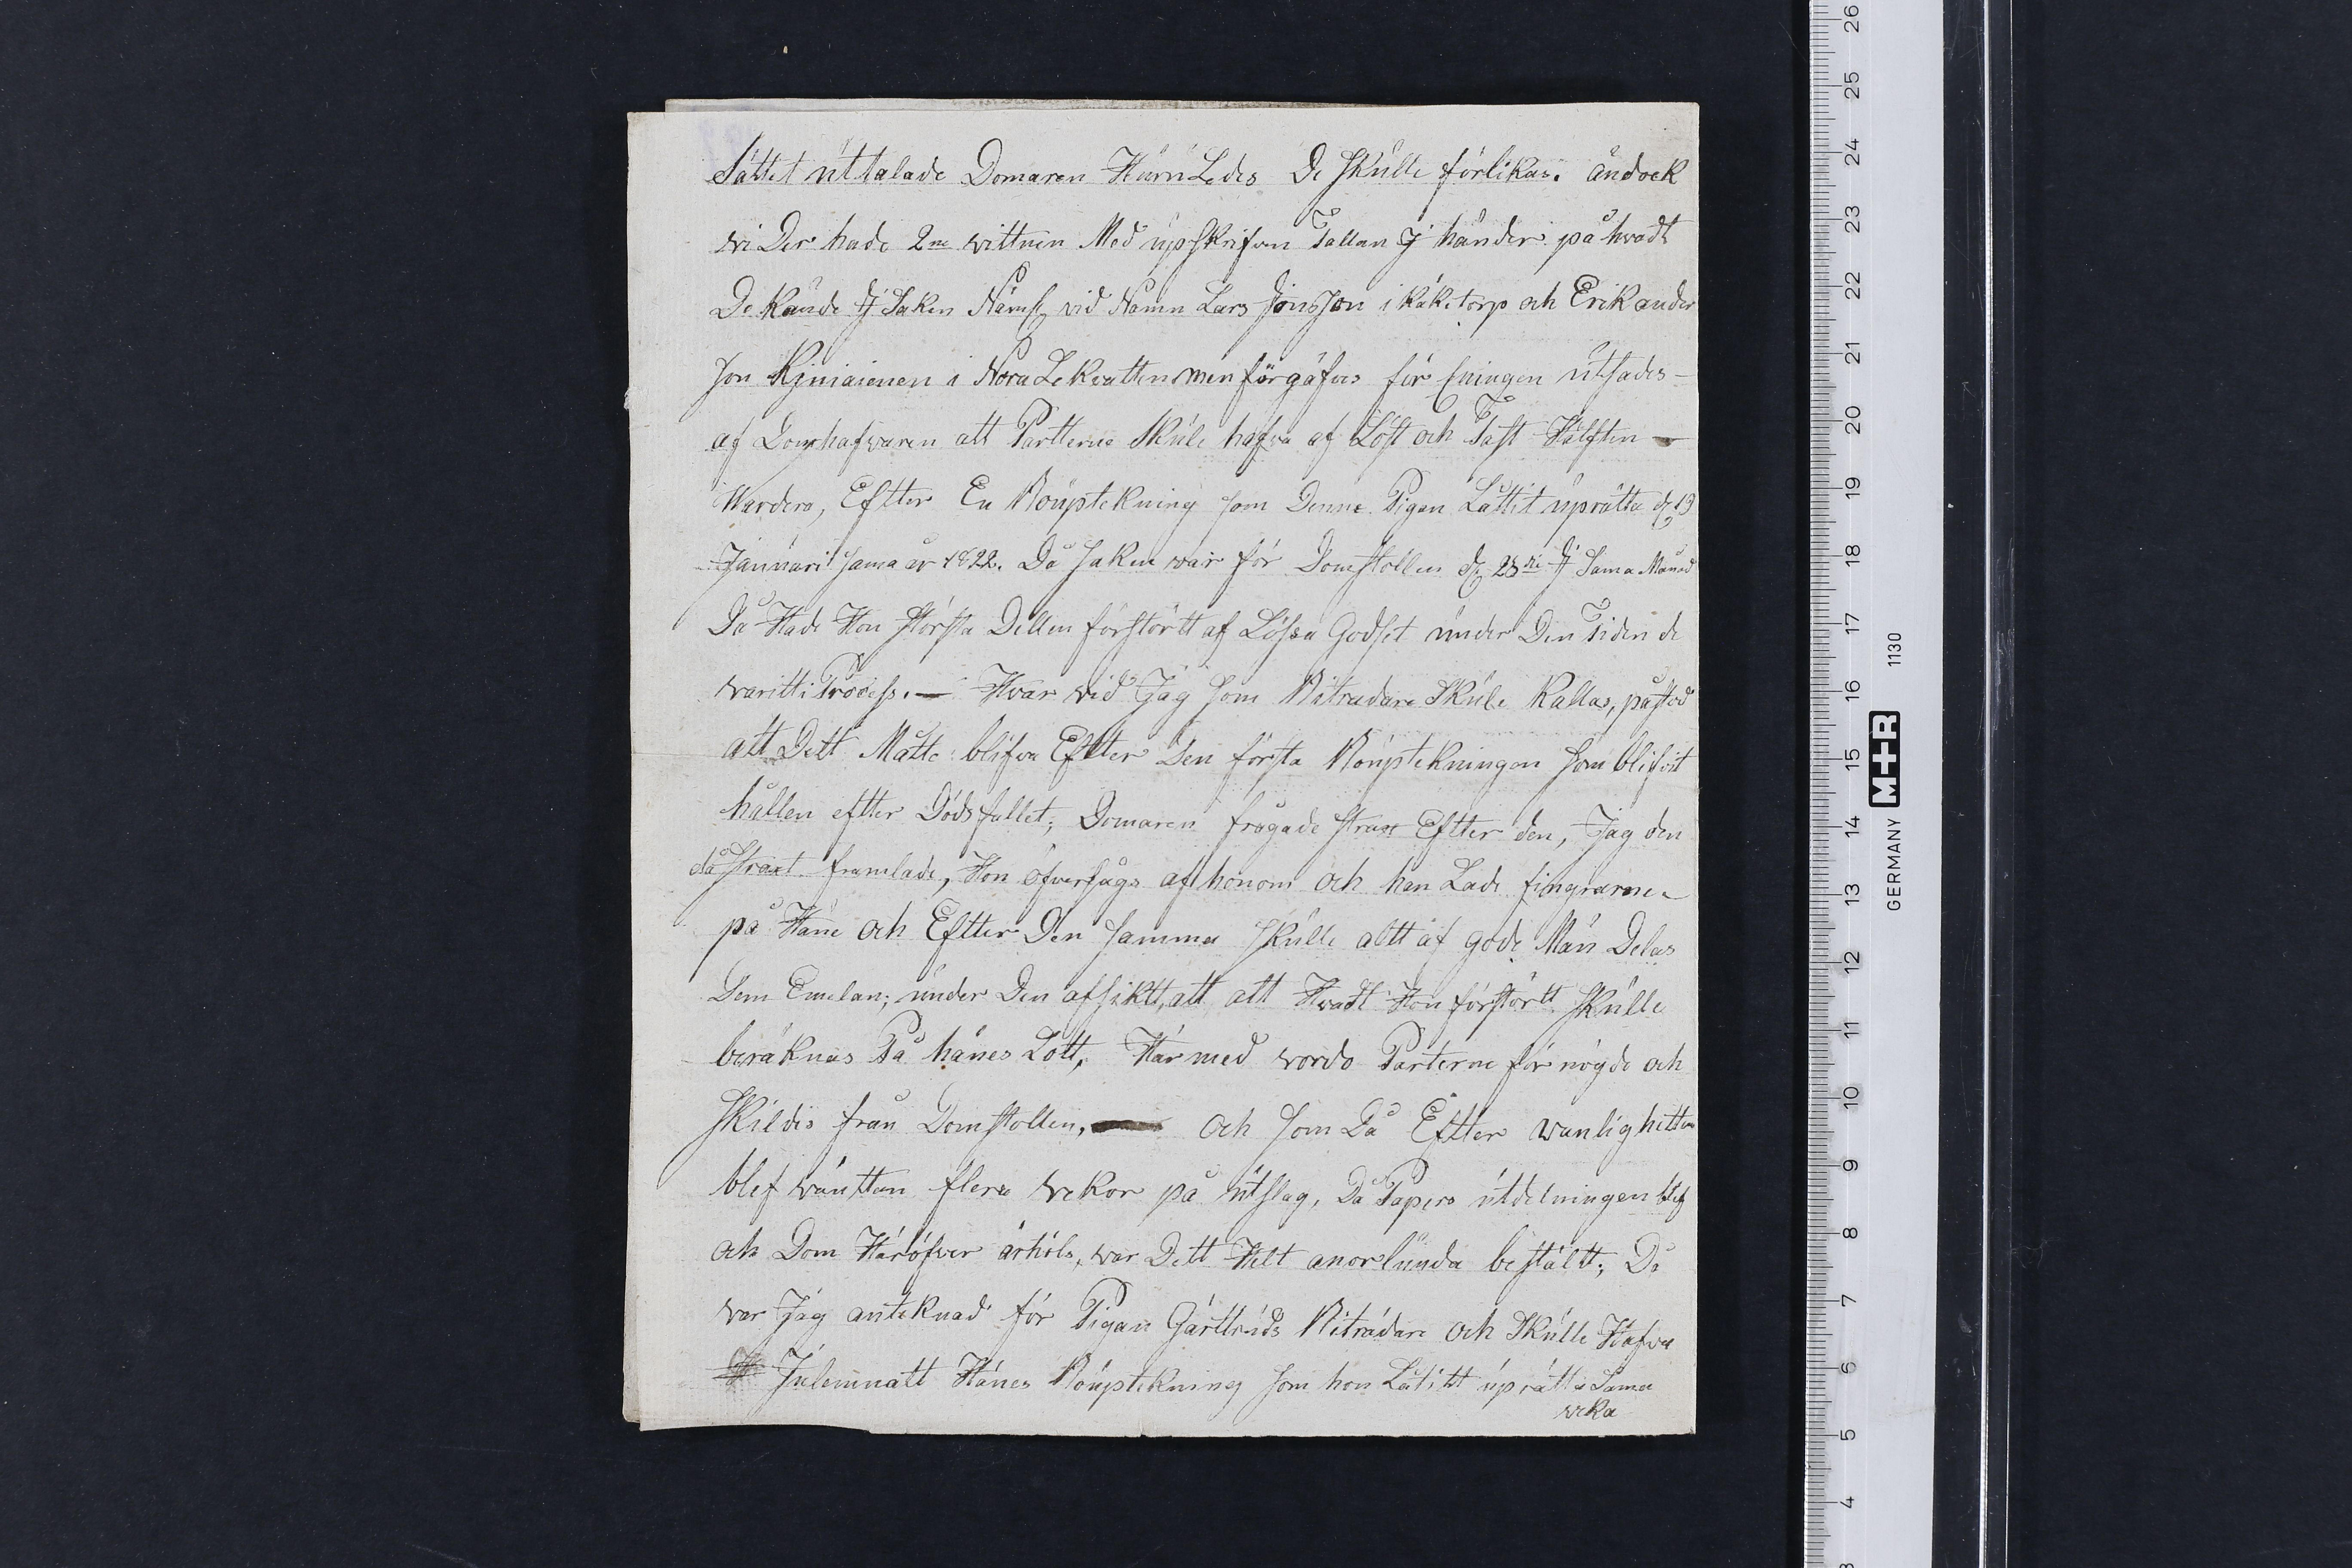 sättet uttalade Domaren Huru Ledes De skulle förlikas. ändock
wi Der hade 2ne wittnen Med upskrifven Tallan J händer på hvadt
De Kände J Saken Nämnl vid Namn Lars Jönsson i Käketorp och Erik ander
son i Norra Lekvatten men förgäfves för Eningen utsades
af Domhafvaren att Partterne Skule hafva af Löst och Fast Hälften
Wardera, Eftter En Bouptekning som Denne Pigan Låttit uprätta d 19
Januari sama år 1822. Då saken var för Domstollen d 28de J Sama Månad
Då Hade Hon största Dellen förstörtt af Lössa Godset under Den Tiden de
varitt i Process. — Hvar vid Jag som Biträdare Skule Kallas, påstod
att Dett Måtte blifva Eftter Den första Bouptekningen som blifvit
hållen eftter Dödsfallet; Domaren frågade strax Eftter den, Jag den
då straxt framlade, Hon öfversågs af honom och han Lade fingrarne
på Häne och Eftter Den samma skulle altt af gode Män Delas
Dem Emelan; under Den afsiktt, att att Hvadt Hon förstörtt skulle
beräknas På hänes Lott, Härmed vordo Parterne för nögde och
skildes från Domstollen, och som Då Eftter wanlighetten
blef wäntten flera vekor på utslag, Då Papers utdelningen blef
och Dom Häröfver ärhöls, var Dett Helt anorlunda bestält; Då
var Jag anteknad för Pigan Gärttruds Biträdare och Skulle Hafva
Jnlemnatt Hänes Bouptekning som hon Låtitt uprätta Sama
veka
26 25 24 23 22 21 20 19 18 17 16 15 14 13 12 11 10 9 8 7 6 5 4 3
GERMANY M+R 1130